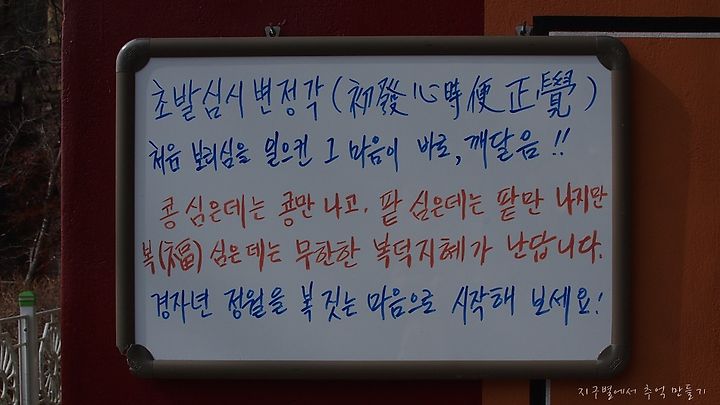 초발심시변정각(初發心時便正覺)
처음 보리심을 일으킨 그 마음이 바로, 깨달음!!
콩 심은데는 콩만 나고, 팥 심은데는 팥만 나지만
복(福) 심은데는 무한한 복덕지혜가 난답니다.
경자년 정월을 복 짓는 마음으로 시작해 보세요!
지구별에서 추억 만들기